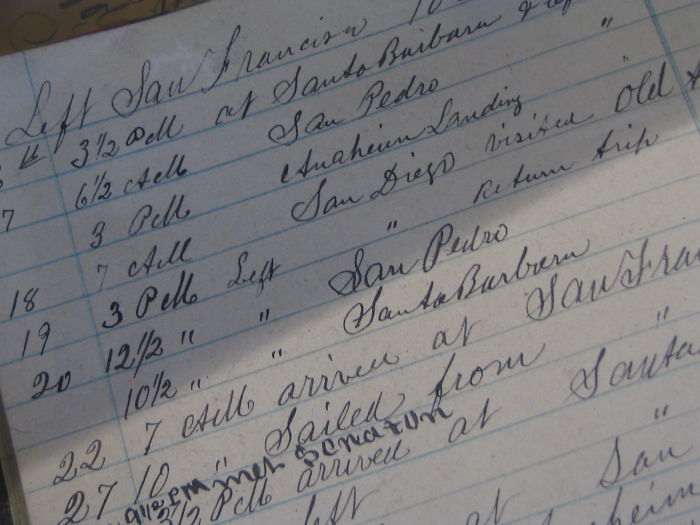 Left San Francisco 10
3½ PM at Santa Barbara
6½ AM San Pedro "
7 3 PM Anaheim Landing "
7 AM San Diego visited Old
18 3 PM Left " Return trip
19 12½ " " San Pedro
20 10½ " " Santa Barbara
22 7 AM arrived at San Fran
27 10 " Sailed from "
9½ PM met Senator
3½ PM arrived at Santa
left "
at San